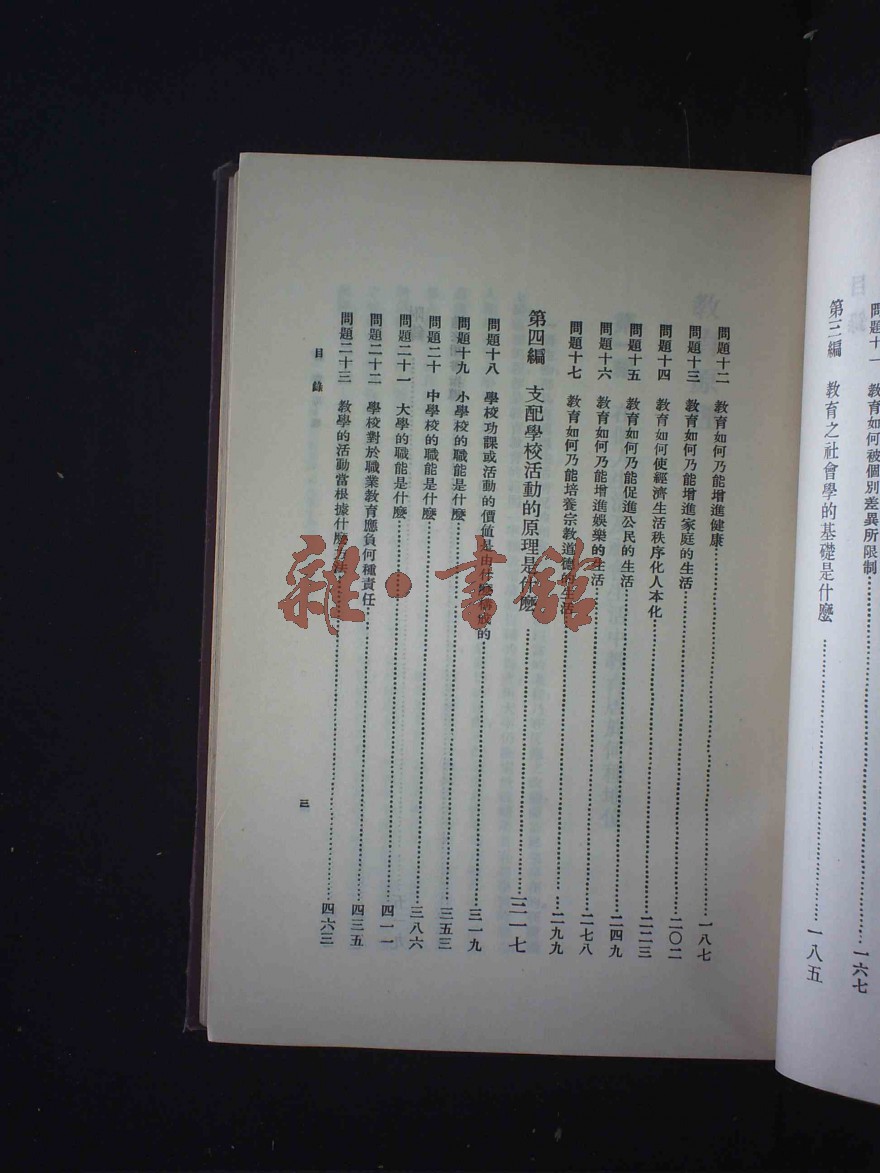 問題十一 教育如何被個別差異所限制……一六七
第三編 教育之社會學的基礎是什麼……一八五
問題十二 教育如何乃能增進健康……一八七
問題十三 教育如何乃能增進家庭的生活……二〇二
問題十四 教育如何使經濟生活秩序化人本化……二二三
問題十五 教育如何乃能促進公民的生活……二四九
問題十六 教育如何乃能增進娛樂的生活……二七八
問題十七 教育如何乃能培養宗教道德的生活……二九九
第四編 支配學校活動的原理是什麼……三一七
問題十八 學校功課或活動的價值是由什麼構成的……三一九
問題十九 小學校的職能是什麼……三五三
問題二十 中學校的職能是什麼……三八六
問題二十一 大學的職能是什麼……四一一
問題二十二 學校對於職業教育應負何種責任……四三五
問題二十三 教學的活動當根據什麼方法……四六三
目錄
三
雜·書館